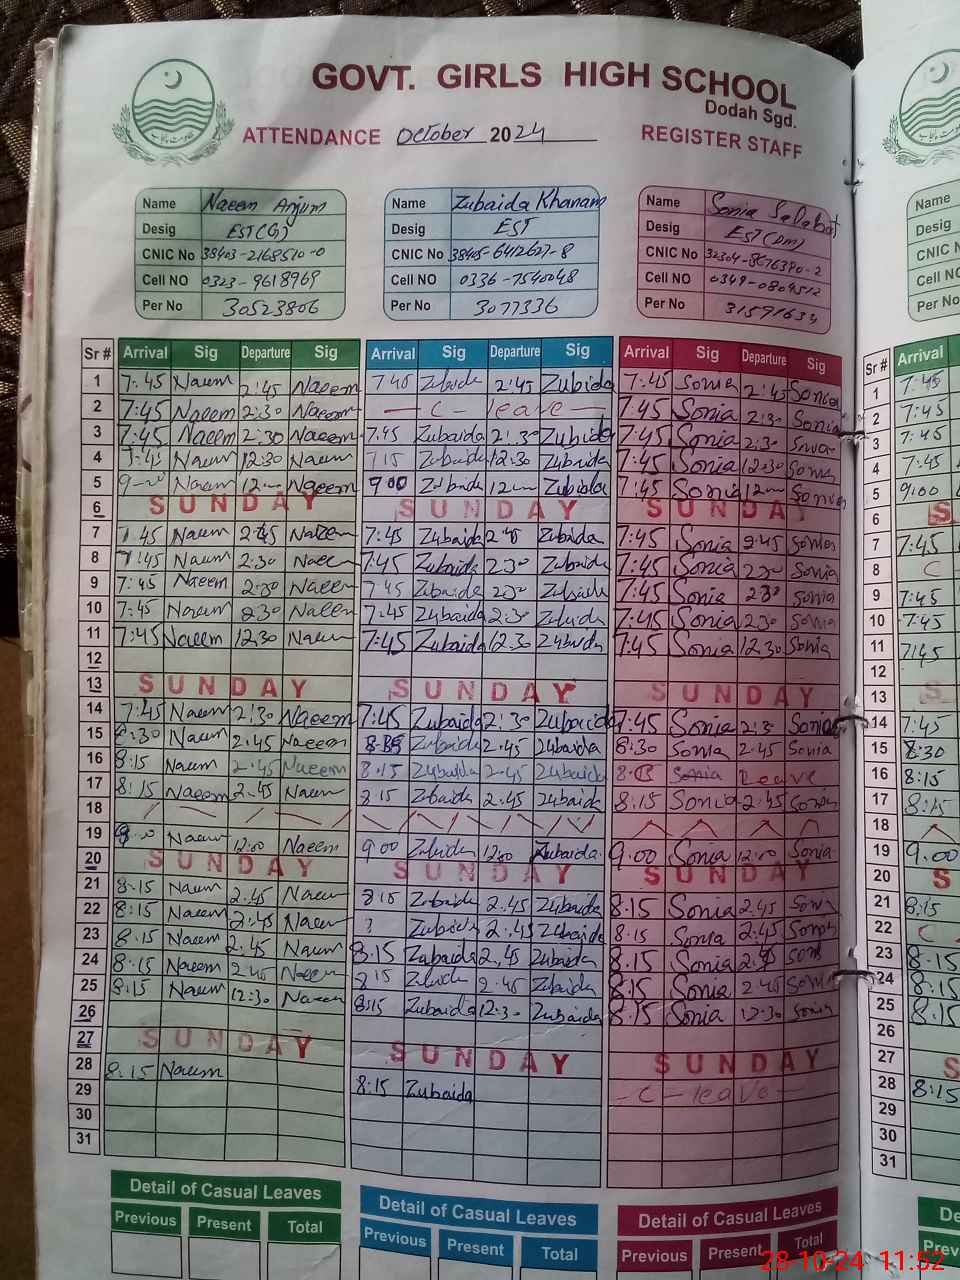 GOVT. GIRLS HIGH SCHOOL
Dodah Sgd.
ATTENDANCE October 2024 REGISTER STAFF
Name Naeem Anjum Name Zubaida Khanam Name Sonia Salabat
Desig EST(G) Desig EST Desig EST(DM)
CNIC No 38403-2168510-0 CNIC No 38405-6412627-8 CNIC No
Cell NO 0323-9618969 Cell NO 0336-7540048 Cell NO
Per No 30523806 Per No 3077336 Per No 31571634
Sr # Arrival Sig Departure Sig Arrival Sig Departure Sig Arrival Sig Departure Sig Arrival
1 7:45 Naeem 2:45 Naeem 7 45 Zubaida 2:45 Zubaida 7:45 Sonia 2:45 Sonia 1 7:45
2 7:45 Naeem 2:30 Naeem C - leave 7:45 Sonia 2:30 Sonia 2 7:45
3 7:45 Naeem 2:30 Naeem 7.45 Zubaida 2:30 Zubaida 7:45 Sonia 2:30 Sonia 3 7:45
4 7:45 Naeem 12:30 Naeem Zubaida 12:30 Zubaida 7:45 Sonia 12:30 Sonia 4 7:45
5 Naeem 12 Naeem 9 00 Zubaida 12 Zubaida 7:45 Sonia 12 Sonia 5 9:00
6 SUNDAY SUNDAY SUNDAY 6 S
7 7:45 Naeem 2:45 Naeem 7:45 Zubaida 2:45 Zubaida 7:45 Sonia 2:45 Sonia 7 7:45
8 7:45 Naeem 2:30 Naeem 7:45 Zubaida 2:30 Zubaida 7:45 Sonia 2:30 Sonia 8 C
9 7:45 Naeem 2:30 Naeem 7 45 Zubaida 2:30 Zubaida 7:45 Sonia 2:30 Sonia 9 7:45
10 7:45 Naeem 2:30 Naeem 7:45 Zubaida 2:30 Zubaida 7:45 Sonia 2:30 Sonia 10 7:45
11 7:45 Naeem 12:30 Naeem 7:45 Zubaida 12:30 Zubaida 7:45 Sonia 12:30 Sonia 11 7:45
12 12
13 SUNDAY SUNDAY SUNDAY 13 S
14 7:45 Naeem 2:30 Naeem 7:45 Zubaida 2:30 Zubaida 7:45 Sonia 2:30 Sonia 14 7:45
15 8:30 Naeem 2.45 Naeem Zubaida 2.45 Zubaida 8:30 Sonia 2.45 Sonia 15 8:30
16 8:15 Naeem 2.45 Naeem 8.15 Zubaida 2.45 Zubaida Sonia Leave 16 8:15
17 8:15 Naeem 2.45 Naeem 8 15 Zubaida 2.45 Zubaida 8:15 Sonia 2.45 Sonia 17 8:15
18 18
19 Naeem 12:00 Naeem 9 00 Zubaida 12:00 Zubaida 9.00 Sonia 12:00 Sonia 19 9.00
20 SUNDAY SUNDAY SUNDAY 20 S
21 8.15 Naeem 2.45 Naeem 8 15 Zubaida 2.45 Zubaida 8.15 Sonia 2.45 Sonia 21 8:15
22 8:15 Naeem 2:45 Naeem Zubaida 2.45 Zubaida 8.15 Sonia 2.45 Sonia 22 C
23 8.15 Naeem 2.45 Naeem 8.15 Zubaida 2.45 Zubaida 8.15 Sonia 2.45 Sonia 23 8:15
24 8:15 Naeem 2.45 Naeem 8 15 Zubaida 2.45 Zubaida 8.15 Sonia 2.45 Sonia 24 8:15
25 8:15 Naeem 12:30 Naeem 8:15 Zubaida 12:30 Zubaida 8.15 Sonia 12.30 Sonia 25 8:15
26 26
27 SUNDAY SUNDAY SUNDAY 27 S
28 8:15 Naeem 8:15 Zubaida C - leave 28 8:15
29 29
30 30
31 31
Detail of Casual Leaves Detail of Casual Leaves Detail of Casual Leaves
Previous Present Total Previous Present Total Previous Present Total
28-10-24 11:52